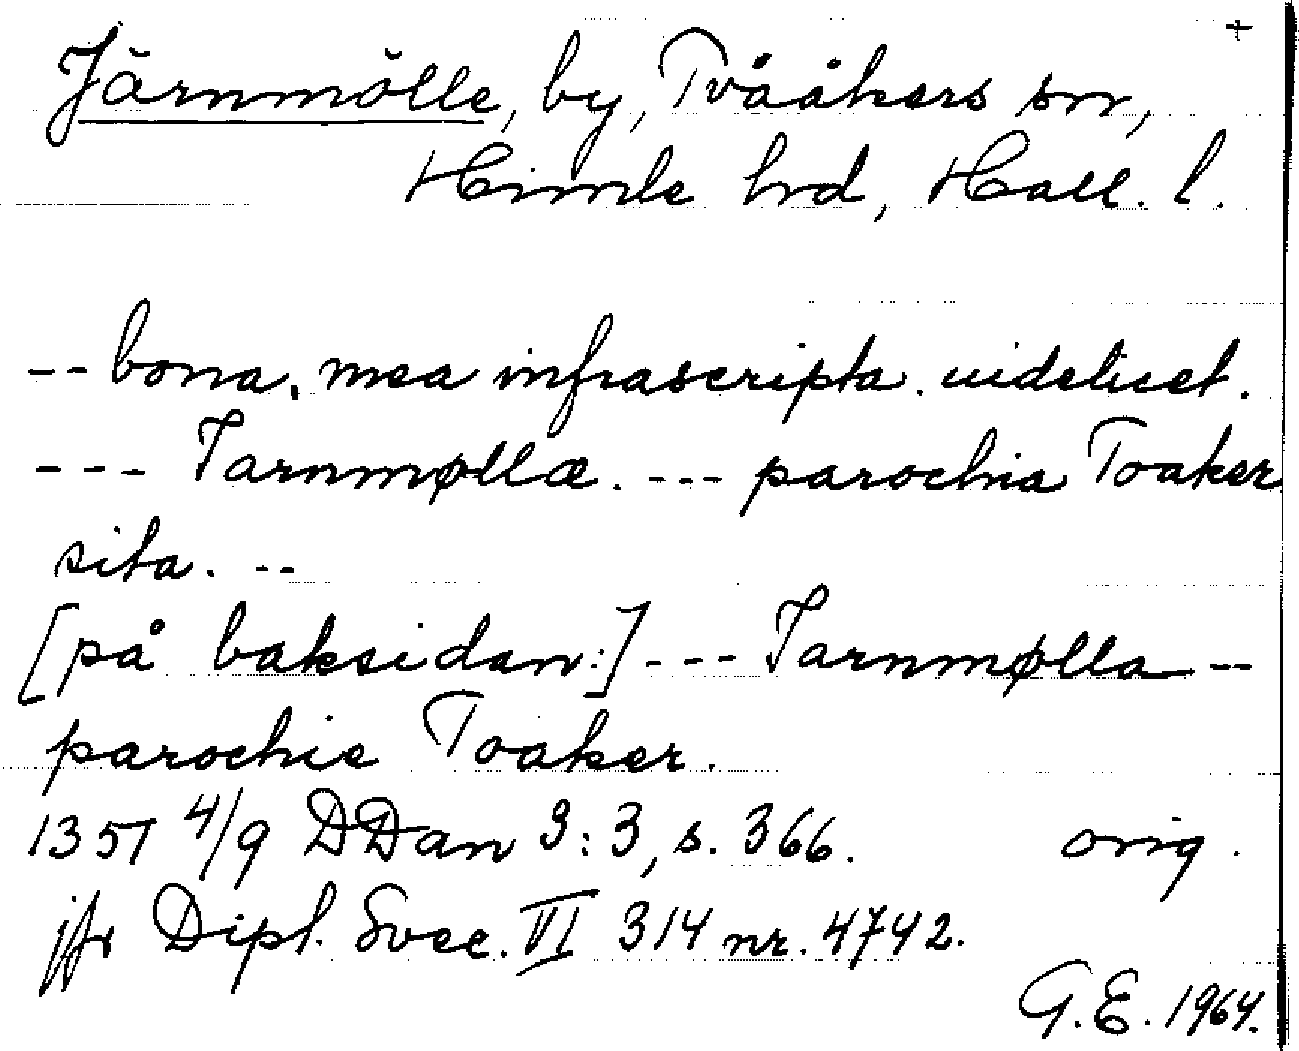 +
Järnmölle, by, Tvååkers sn,
Himle hrd, Hall. l.
-- bona. mea infrascripta. uidelicet.
--- Iarnmøllæ. --- parochia Toaker
sita. --
[på baksidan:] --- Iarnmølla --
parochie Toaker.
1351 4/9 DDan 3:3, s. 366. orig.
jfr Dipl. Svec. VI 314 nr. 4742.
G.E. 1964.